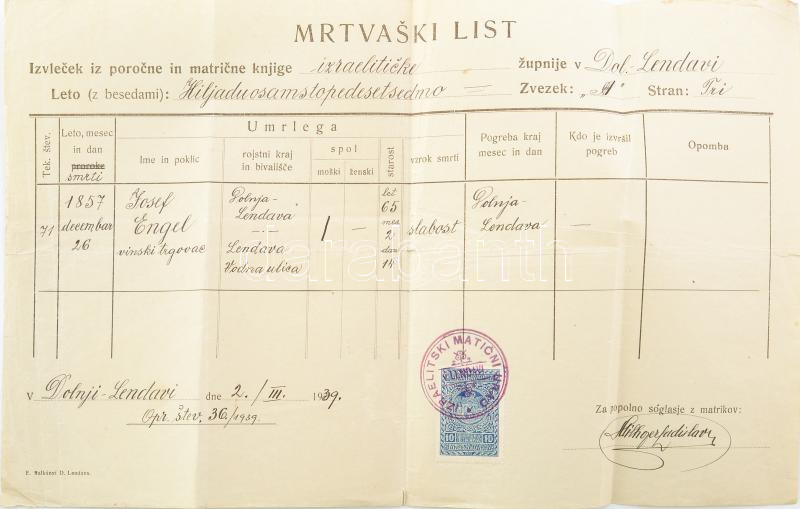 MRTVAŠKI LIST
Izvleček iz poročne in matrične knjige izraelitičke župnije v Dol.-Lendavi
Leto (z besedami): Hiljaduosamstopedesetsedmo = Zvezek: „A“ Stran: Tri
Tek. štev.
Leto, mesec in dan poroke smrti
Umrlega
Ime in poklic
rojstni kraj in bivališče
spol
moški
ženski
starost
vzrok smrti
Pogreba kraj mesec in dan
Kdo je izvršil pogreb
Opomba
71
1857 decembar 26
Josef Engel vinski trgovac
Dolnja-Lendava
Lendava Vodna ulica
/
—
let 65 mes 2 dan 14
slabost
Dolnja-Lendava
—
darabanth
IZRAELITSKI MATIČNI URAD
10 10
v Dolnji-Lendavi dne 2./III. 1939.
Opr. štev. 36./1939.
Za popolno soglasje z matrikov:
E. Balkányi D. Lendava.